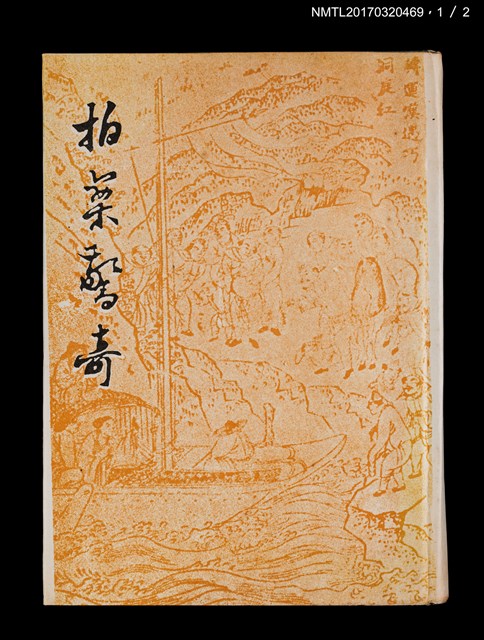 NMTL20170320469，1／2
拍案驚奇
轉運漢遇巧
洞庭紅